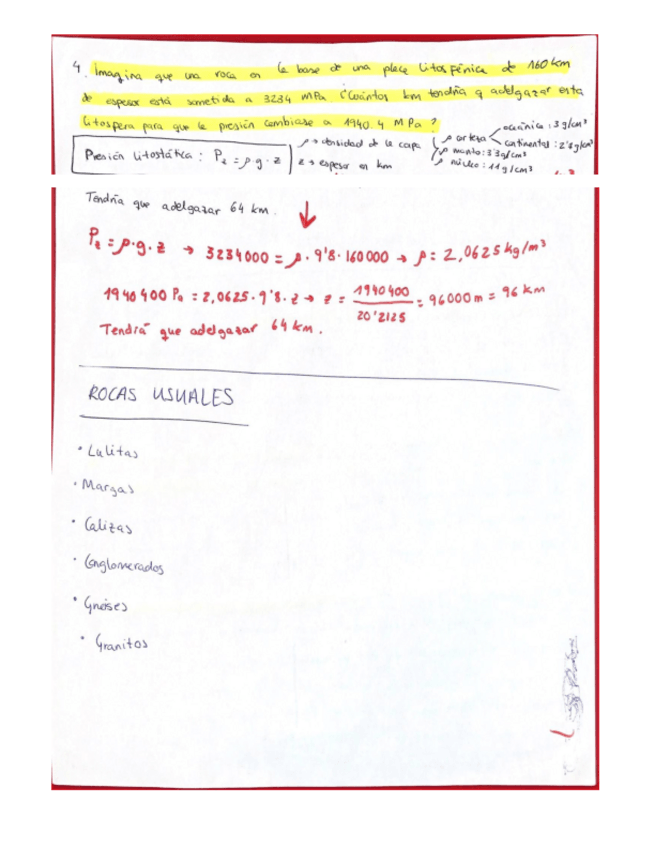 4. Imagina que una roca en la base de una placa litosférica de 160 km
de espesor está sometida a 3234 MPa. ¿Cuántos km tendría q adelgazar esta
litosfera para que la presión cambiase a 1940.4 MPa?
Presión litostática: Pₑ = ρ·g·z
ρ → densidad de la capa
z → espesor en km
ρ corteza
oceánica: 3 g/cm³
continental: 2'8 g/cm³
ρ manto: 3'3 g/cm³
ρ núcleo: 11 g/cm³
Tendría que adelgazar 64 km.
Pₑ = ρ·g·z → 3234000 = ρ · 9'8 · 160000 → ρ = 2,0625 kg/m³
1940400 Pa = 2,0625 · 9'8 · z → z = 1940400 / 20'2125 = 96000 m = 96 km
Tendrá que adelgazar 64 km.
ROCAS USUALES
• Lulitas
• Margas
• Calizas
• Conglomerados
• Gneises
• Granitos